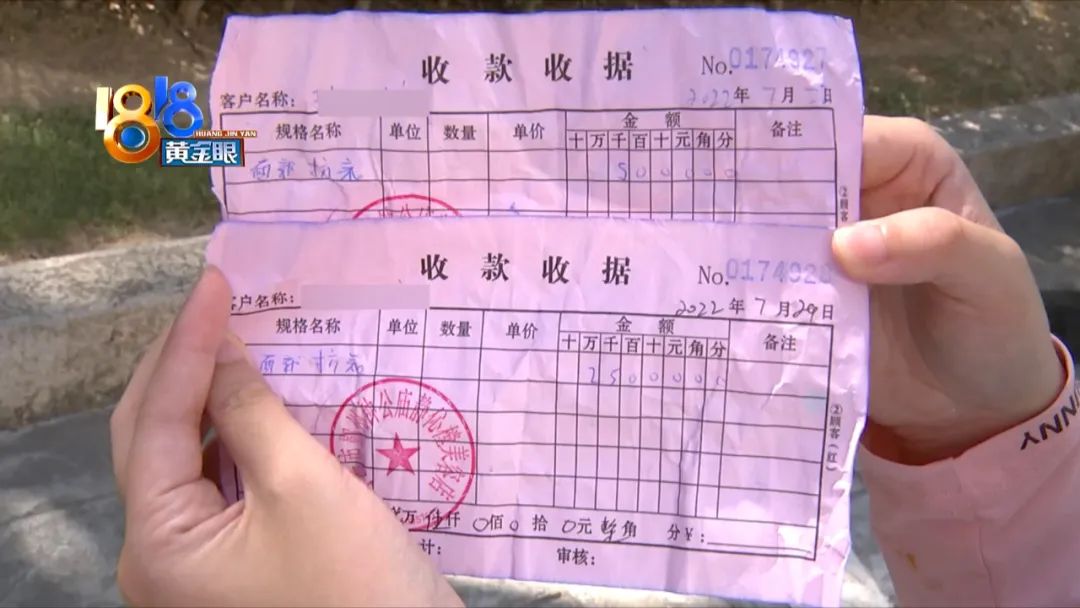 收款收据 No.0174927
1818
HUANG JIN YAN
黄金眼
客户名称: 2022年7月 日
规格名称 单位 数量 单价 金额 备注
十万千百十元角分
抗衰 500000
②顾客
收款收据 No.017492
客户名称: 2022年7月29日
规格名称 单位 数量 单价 金额 备注
十万千百十元角分
抗衰 2500000
②顾客(红)
万 仟 0佰0拾0元整角 分¥:
计: 审核:
NNY